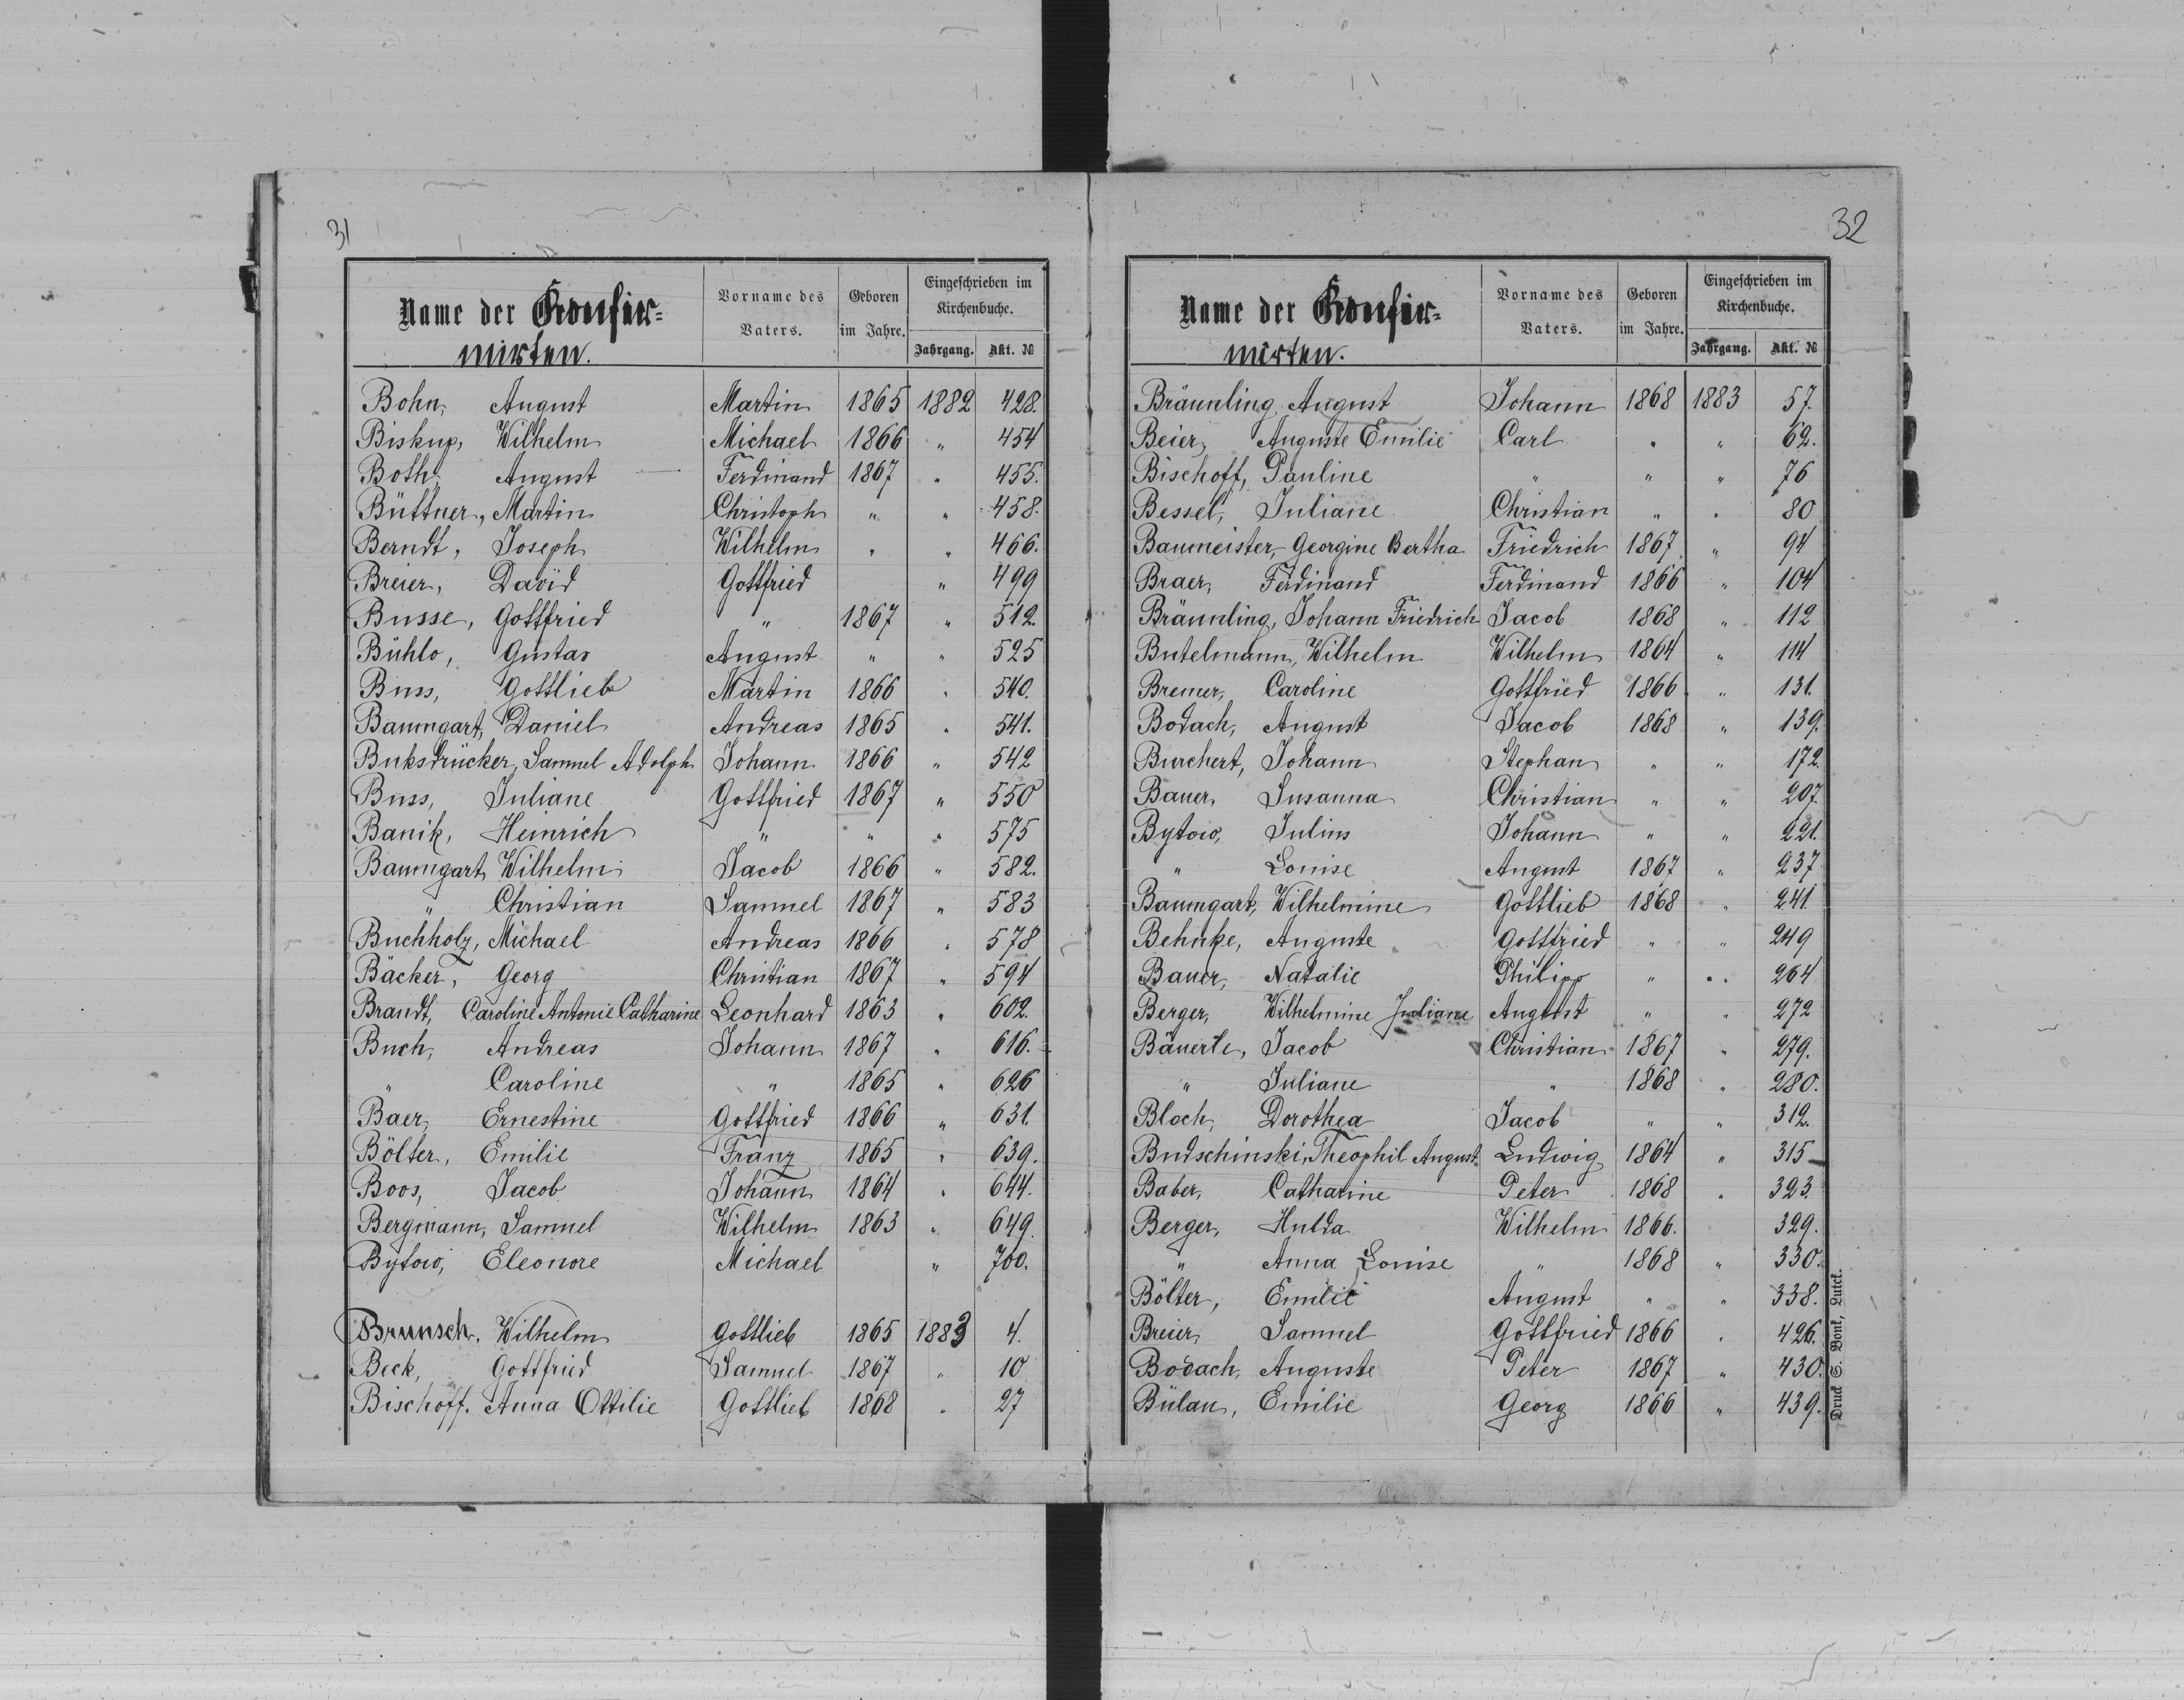 31
Name der Konfir=
mirten.
Vorname des
Vaters.
Geboren
im Jahre.
Eingeschrieben im
Kirchenbuche.
Jahrgang. Akt. №
Bohn, August Martin 1865 1882 428.
Biskup, Wilhelm Michael 1866 " 454
Both, August Ferdinand 1867 " 455.
Büttner, Martin Christoph " " 458.
Berndt, Joseph Wilhelm " " 466.
Breier, David Gottfried " 499
Busse, Gottfried " 1867 " 512.
Bühlo, Gustav August " " 525
Buss, Gottlieb Martin 1866 " 540.
Baumgart, Daniel Andreas 1865 " 541.
Buksdrücker, Samuel Adolph Johann 1866 " 542
Buss, Juliane Gottfried 1867 " 550
Banik, Heinrich " " " 575
Baumgart, Wilhelm Jacob 1866 " 582.
" Christian Samuel 1867 " 583
Buchholz, Michael Andreas 1866 " 578
Bäcker, Georg Christian 1867 " 594
Brandt, Caroline Antonie Catharine Leonhard 1863 " 602.
Buch, Andreas Johann 1867 " 616.
" Caroline " 1865 " 626
Baer, Ernestine Gottfried 1866 " 631.
Bölter, Emilie Franz 1865 " 639.
Boos, Jacob Johann 1864 " 644.
Bergmann, Samuel Wilhelm 1863 " 649.
Bytow, Eleonore Michael " 700.
Brunsch, Wilhelm Gottlieb 1865 1883 4.
Beck, Gottfried Samuel 1867 " 10
Bischoff, Anna Ottilie Gottlieb 1868 " 27
32
Name der Konfir=
mirten.
Vorname des
Vaters.
Geboren
im Jahre.
Eingeschrieben im
Kirchenbuche.
Jahrgang. Akt. №
Bräunling, August Johann 1868 1883 57.
Beier, Auguste Emilie Carl " " 62.
Bischoff, Pauline " " " 76
Bessel, Juliane Christian " " 80
Baumeister, Georgine Bertha Friedrich 1867 " 94
Braer, Ferdinand Ferdinand 1866 " 104
Bräunling, Johann Friedrich Jacob 1868 " 112
Butelmann, Wilhelm Wilhelm 1864 " 114
Bremer, Caroline Gottfried 1866 " 131.
Bodach, August Jacob 1868 " 139.
Burchert, Johann Stephan " " 172.
Bauer, Susanna Christian " " 207.
Bytow, Julius Johann " " 221.
" Louise August 1867 " 237
Baumgart, Wilhelmine Gottlieb 1868 " 241.
Behnke, Auguste Gottfried " " 249
Bauer, Natalie Philipp " " 264
Berger, Wilhelmine Juliane August " " 272
Bäuerle, Jacob Christian 1867 " 279.
" Juliane " 1868 " 280.
Bloch, Dorothea Jacob " " 312.
Budschinski, Theophil August Ludwig 1864 " 315
Baber, Catharine Peter 1868 " 323.
Berger, Hulda Wilhelm 1866. 329.
" Anna Louise " 1868 " 330.
Bölter, Emilie August " " 338.
Breier, Samuel Gottfried 1866 " 426.
Bodach, Auguste Peter 1867 " 430.
Bülau, Emilie Georg 1866 " 439.
Druck S. Bonk, Lutck.